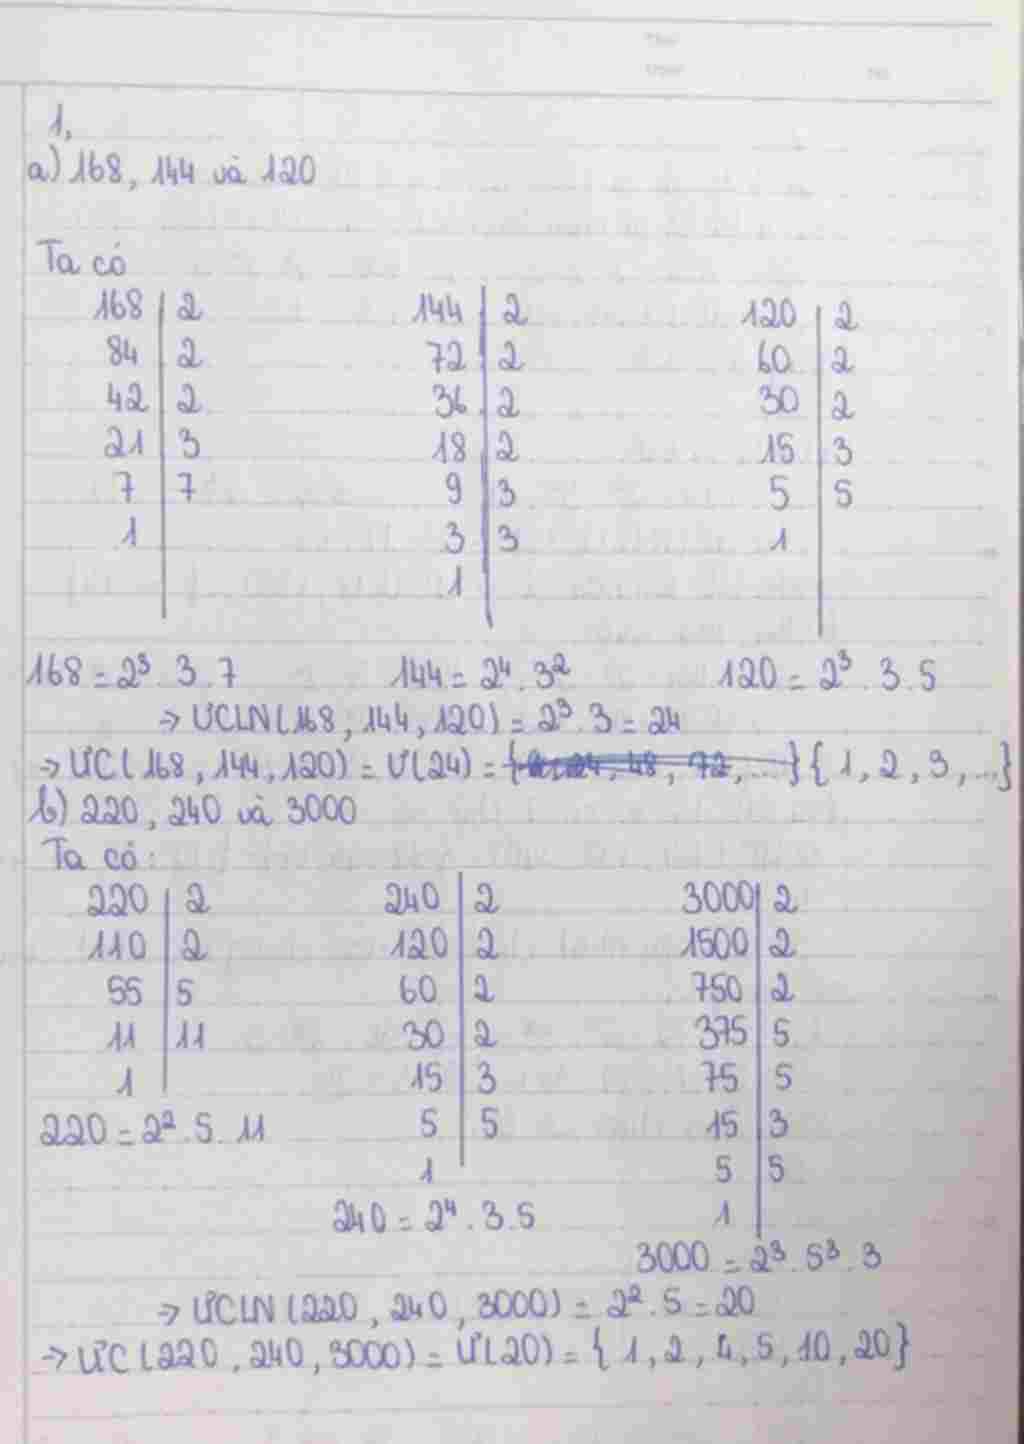 1,
a) 168, 144 và 120
Ta có
168 | 2 144 | 2 120 | 2
84 | 2 72 | 2 60 | 2
42 | 2 36 | 2 30 | 2
21 | 3 18 | 2 15 | 3
7 | 7 9 | 3 5 | 5
1 3 | 3 1
1
168 = 2³ . 3 . 7 144 = 2⁴ . 3² 120 = 2³ . 3 . 5
→ ƯCLN(168, 144, 120) = 2³ . 3 = 24
→ ƯC(168, 144, 120) = Ư(24) = {1, 2, 3, ...}
b) 220, 240 và 3000
Ta có:
220 | 2 240 | 2 3000 | 2
110 | 2 120 | 2 1500 | 2
55 | 5 60 | 2 750 | 2
11 | 11 30 | 2 375 | 5
1 15 | 3 75 | 5
220 = 2² . 5 . 11 5 | 5 15 | 3
1 5 | 5
240 = 2⁴ . 3 . 5 1
3000 = 2³ . 5³ . 3
→ ƯCLN(220, 240, 3000) = 2² . 5 = 20
→ ƯC(220, 240, 3000) = Ư(20) = {1, 2, 4, 5, 10, 20}